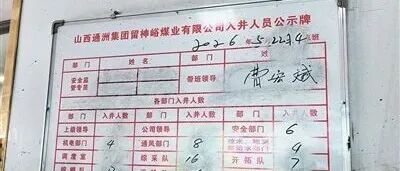 山西通洲集团留神峪煤业有限公司入井人员公示牌
2026年5.22日4点班
部门 姓名 部门 姓名
安全监管专员 带班领导 曹宏斌
各部门入井人数
部门 入井人数 部门 入井人数 部门 入井人数
上级领导 公司领导 安全部门 6
机电部门 4 通风部门 8 4
调度室 综采队 16 开拓队 7